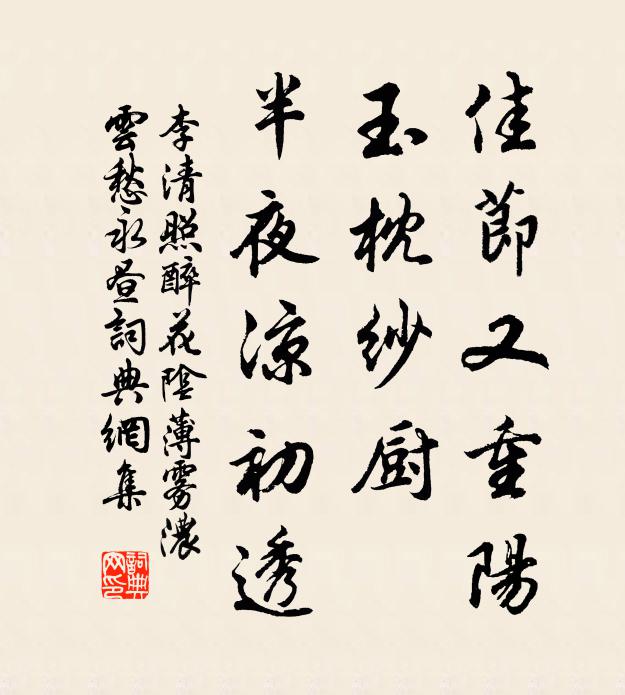 佳節又重陽
玉枕紗厨
半夜涼初透
李清照醉花陰薄霧濃
雲愁永昼詞典網集
詞典
网印